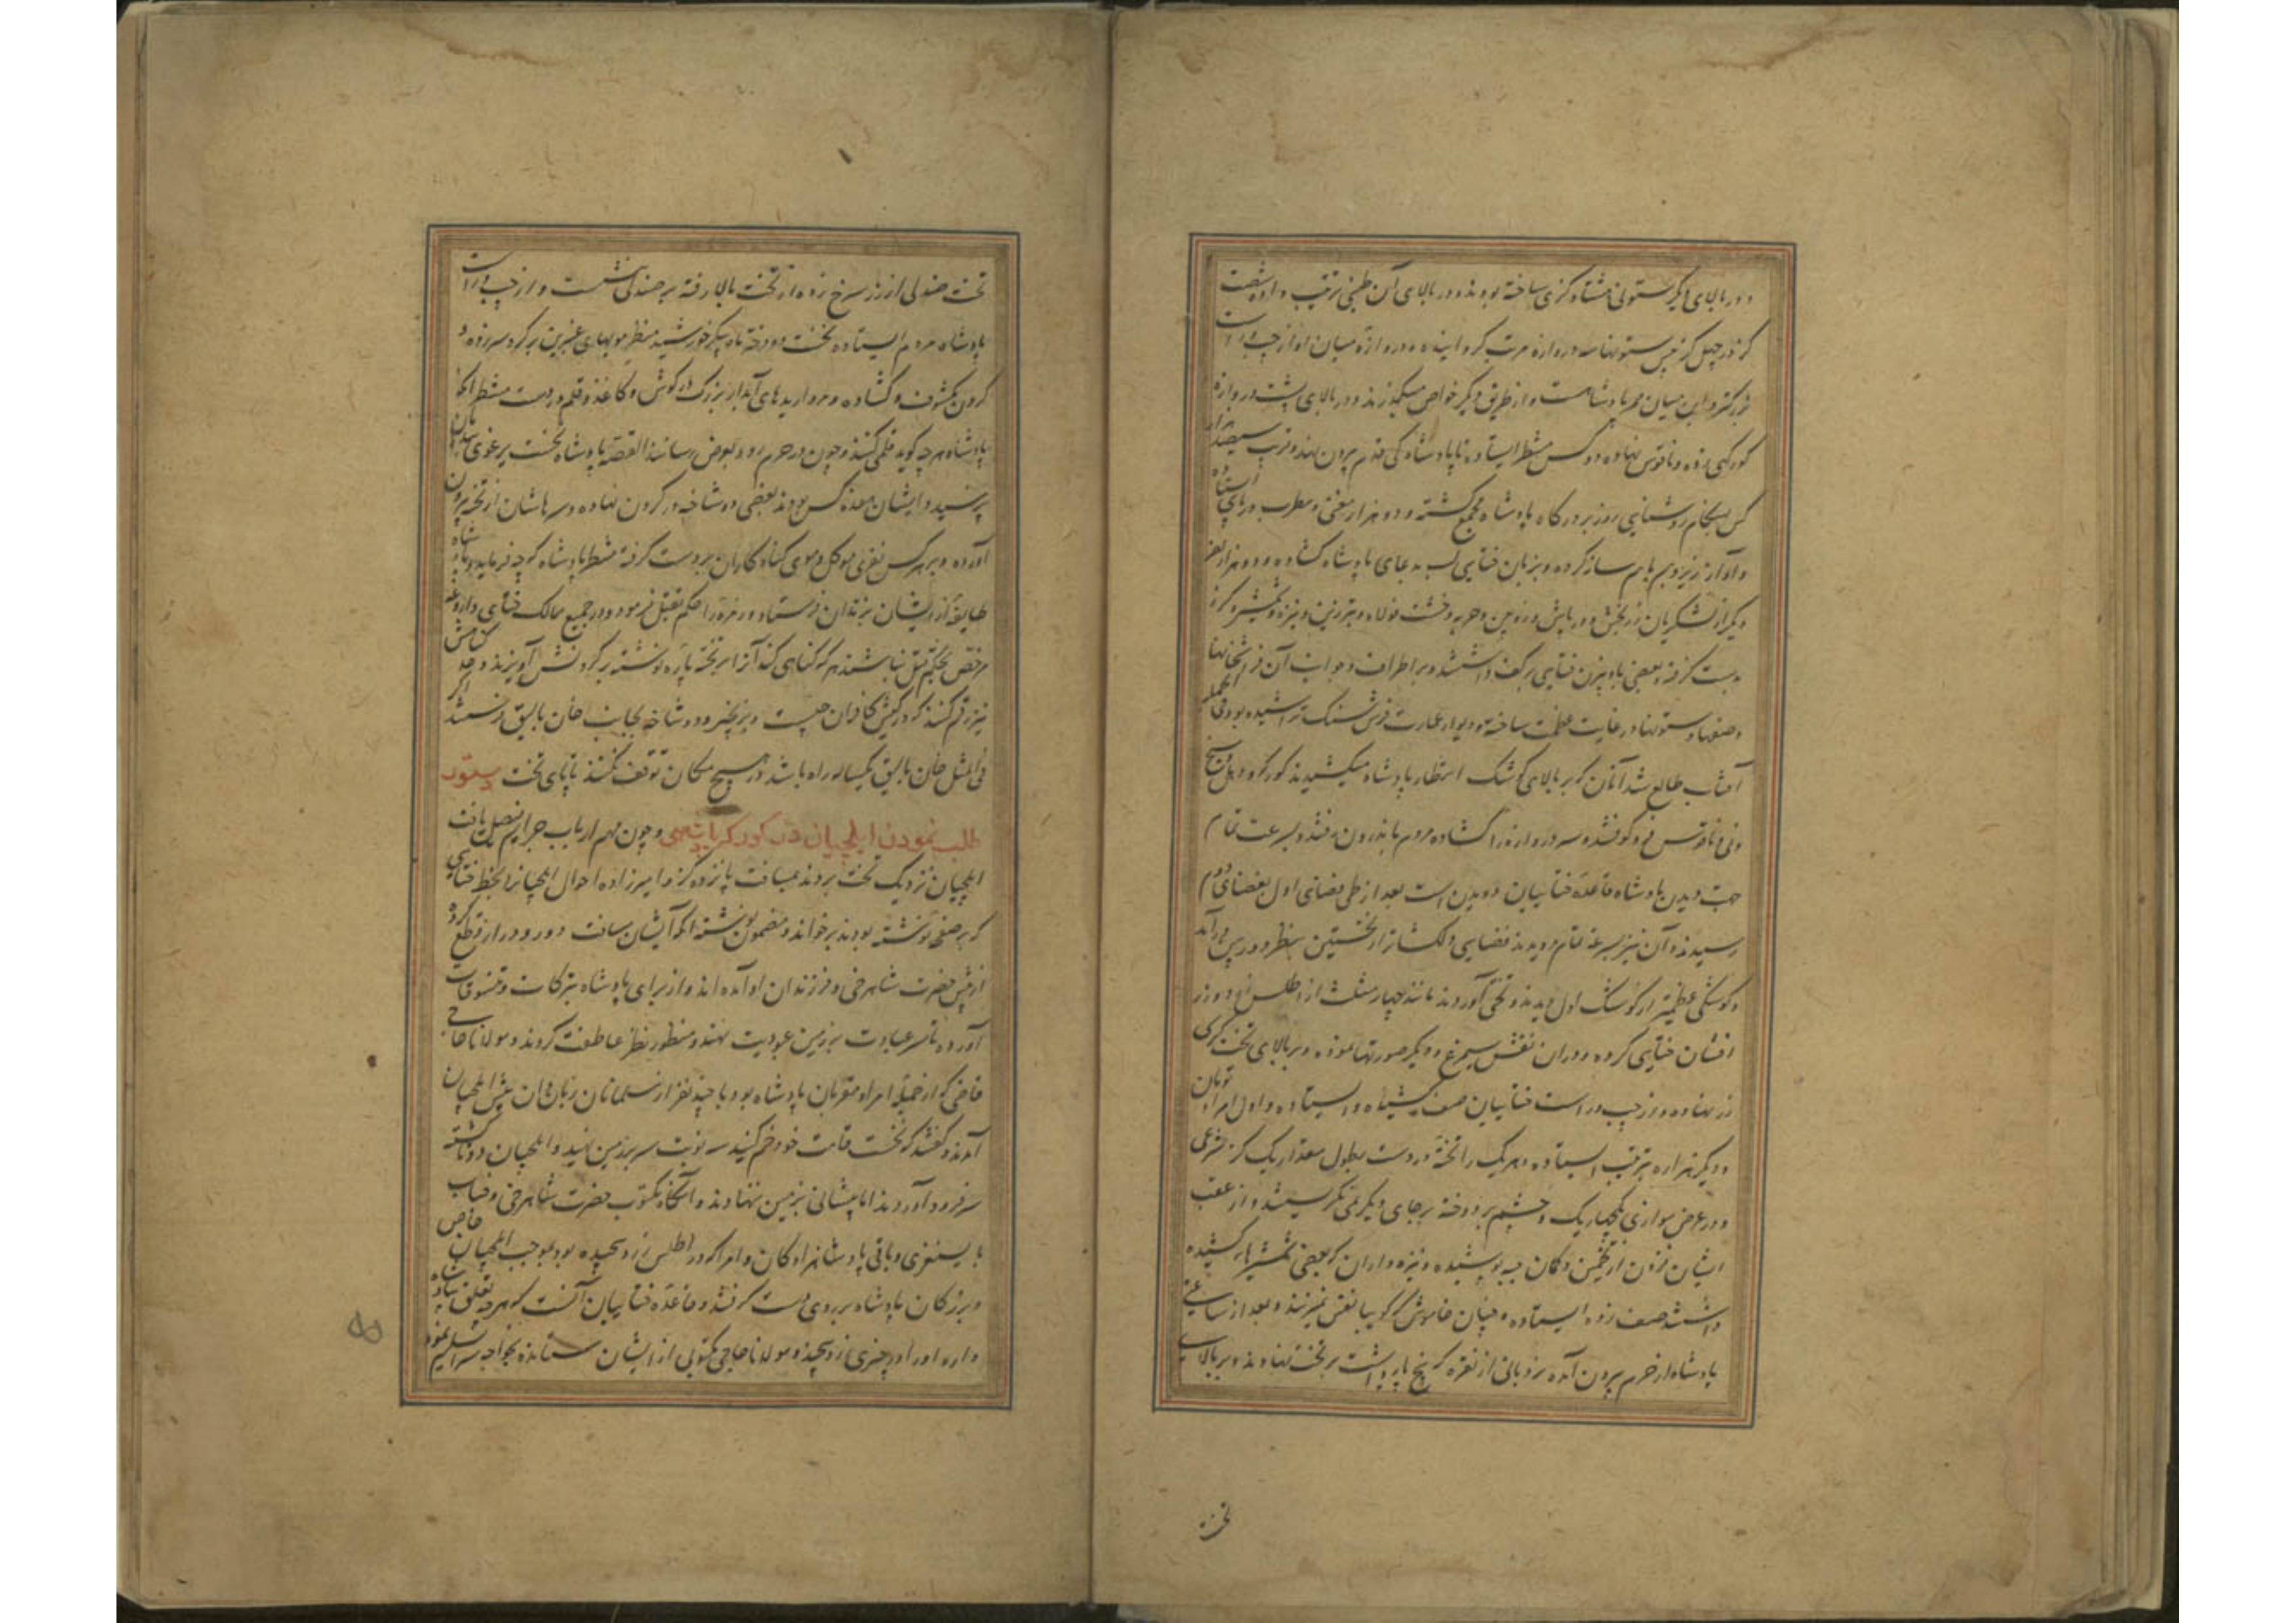 و در بالای دیگر ستونی هشتاد گزی ساخته بودند و در بالای آن طنبی ترتیب داده شصت
گز در چهل گز پس ستونها سه دروازه مرتب گردانیده و دروازهٔ میان او از چپ و راست
بزرگتر و این میان ممر پادشاهست و از طریق دیگر خواص میگذرند و در بالای پشت دروازه
کورکهٔ زده و ناقوس نهاده و دو کس منتظر ایستاده تا پادشاه کی قدم بیرون نهد و قریب سیصد هزار
کس بهنگام روشنایی روز بر درگاه پادشاه مجمع گشته و دو هزار مغنی و مطرب بر پای ایستاده
و آواز زیر و بم باهم ساز کرده و بزبان ختایی لب بدعای پادشاه گشاده و دو هزار نفر
دیگر از لشکریان زربخش و دورباش و زوبین و حربه و خشت فولاد و تبرزین و نیزه و شمشیر و گرز
بدست گرفته و بعضی بادبیزن ختایی بر کف داشتند و بر اطراف و جوانب آن خانها
و صفها و ستونها در غایت عظمت ساخته و دیوار عمارت فرش سنگ تراشیده بود فی الجمله
آفتاب طالع شد آنان که بر بالای کوشک انتظار پادشاه میکشیدند کورکه و دهل و سنج
و نی و ناقوس فرو کوفتند و سه در دروازه را گشاده مردم باندرون رفتند و بسرعت تمام
جهت دیدن پادشاه قاعدهٔ ختاییان دویدن است بعد از طی فضای اول بفضای دوم
رسیدند و آن نیز بسرعت تمام دویدند فضایی دلگشاتر از نخستین بنظر در آمد
و کوشکی عظیم‌تر از کوشک اول دیدند و تختی آوردند مانند چهار مثلث از اطلس زرد و زر
افشان ختایی کرده و در آن نقش سیمرغ و دیگر صورتها نموده و بر بالای تخت کرسی
زر نهاده و از چپ و راست ختاییان صف کشیده و ایستاده و اول امراء تومان
و دیگر هزاره بترتیب ایستاده و هریک را تختهٔ در دست بطول مقدار یک گز شرعی
و در عرض موازی یکچهاریک و چشم بر دوخته بر جای دیگر نمی‌نگریستند و از عقب
ایشان فزون از تخمین و گمان جبه پوشیده و نیزه داران که بعضی شمشیرها کشیده
داشتند صف زده ایستاده و چنان خاموش که گویا نفس نمیزنند و بعد از ساعتی
پادشاه از حرم بیرون آمده نردبانی از نقره که پنج پایه داشت بر تخت نهادند و بر بالای
تخت
تخت صندلی از زر سرخ زده از تخت بالا رفته بر صندلی نشست و از چپ و راست
پادشاه مردم ایستاده نخست دو دختر ماه پیکر خورشید منظر مویهای عنبرین بر گرد سر زده و
گردن مکشوف و گشاده و مرواریدهای آبدار بزرگ در گوش و کاغذ و قلم در دست منتظر آنکه
پادشاه هرچه گوید قلمی کنند و چون در حرم رود بعرض رسانند القصه پادشاه نخست یرغوی بندیان
پرسید و ایشان هفتصد کس بودند بعضی دوشاخه در گردن نهاده و سرهاشان از تخته بیرون
آورده و بر هر کس نفری موکل و موی گناه کاران بر دست گرفته منتظر پادشاه که چه فرماید پادشاه
طایفهٔ از ایشان بزندان فرستاد و زمره را حکم بقتل فرمود و در جمیع ممالک ختای داروغه
مرخص بحکم قتل نباشند هر که گناهی کند آنرا بر تخته پاره نوشته بر گردنش آویزند و حد گناهش
نیز رقم کنند که در کیش کافران چیست و بزنجیر و دوشاخه بجانب خان بالیق فرستند اگر
فی المثل خان بالیق یکساله راه باشد در هیچ مکان توقف نکنند تا پای تخت
طلب نمودن ایلچیان و چون مهم ارباب جرایم فیصل یافت
ایلچیان نزدیک تخت بردند بمسافت پانزده گز و امیرزاده احوال ایلچیان را بخط ختایی
که بر صفحهٔ نوشته بودند بر خواند و مضمون نوشته آنکه ایشان مسافت دور و دراز قطع کرده
از پیش حضرت شاهرخی و فرزندان او آمده اند و از برای پادشاه تبرکات و تنسوقات
آورده تا سر عبادت بر زمین عبودیت نهند و منظور نظر عاطفت گردند و مولانا حاجی
قاضی که از جملهٔ امرا و مقربان پادشاه بود با چند نفر از مسلمانان زبان دان پیش ایلچیان
آمدند و گفتند که نخست قامت خود خم کنید سه نوبت سر بر زمین نهید و ایلچیان دوتا گشته
سر فرود آوردند اما پیشانی بر زمین ننهادند و آنگاه مکتوب حضرت شاهرخی و جناب
بایسنغری و باقی پادشاهزادگان و امرا که در اطلس زرد پیچیده بود بموجب ایلچیان خاص
و بزرگان پادشاه بر روی دست گرفتند و قاعدهٔ ختاییان آنست که هرچه تعلق پادشاه
دارد او را در چیزی زرد پیچند و مولانا حاجی مکتوب از ایشان ستانده بخواجه سرا تسلیم نمود